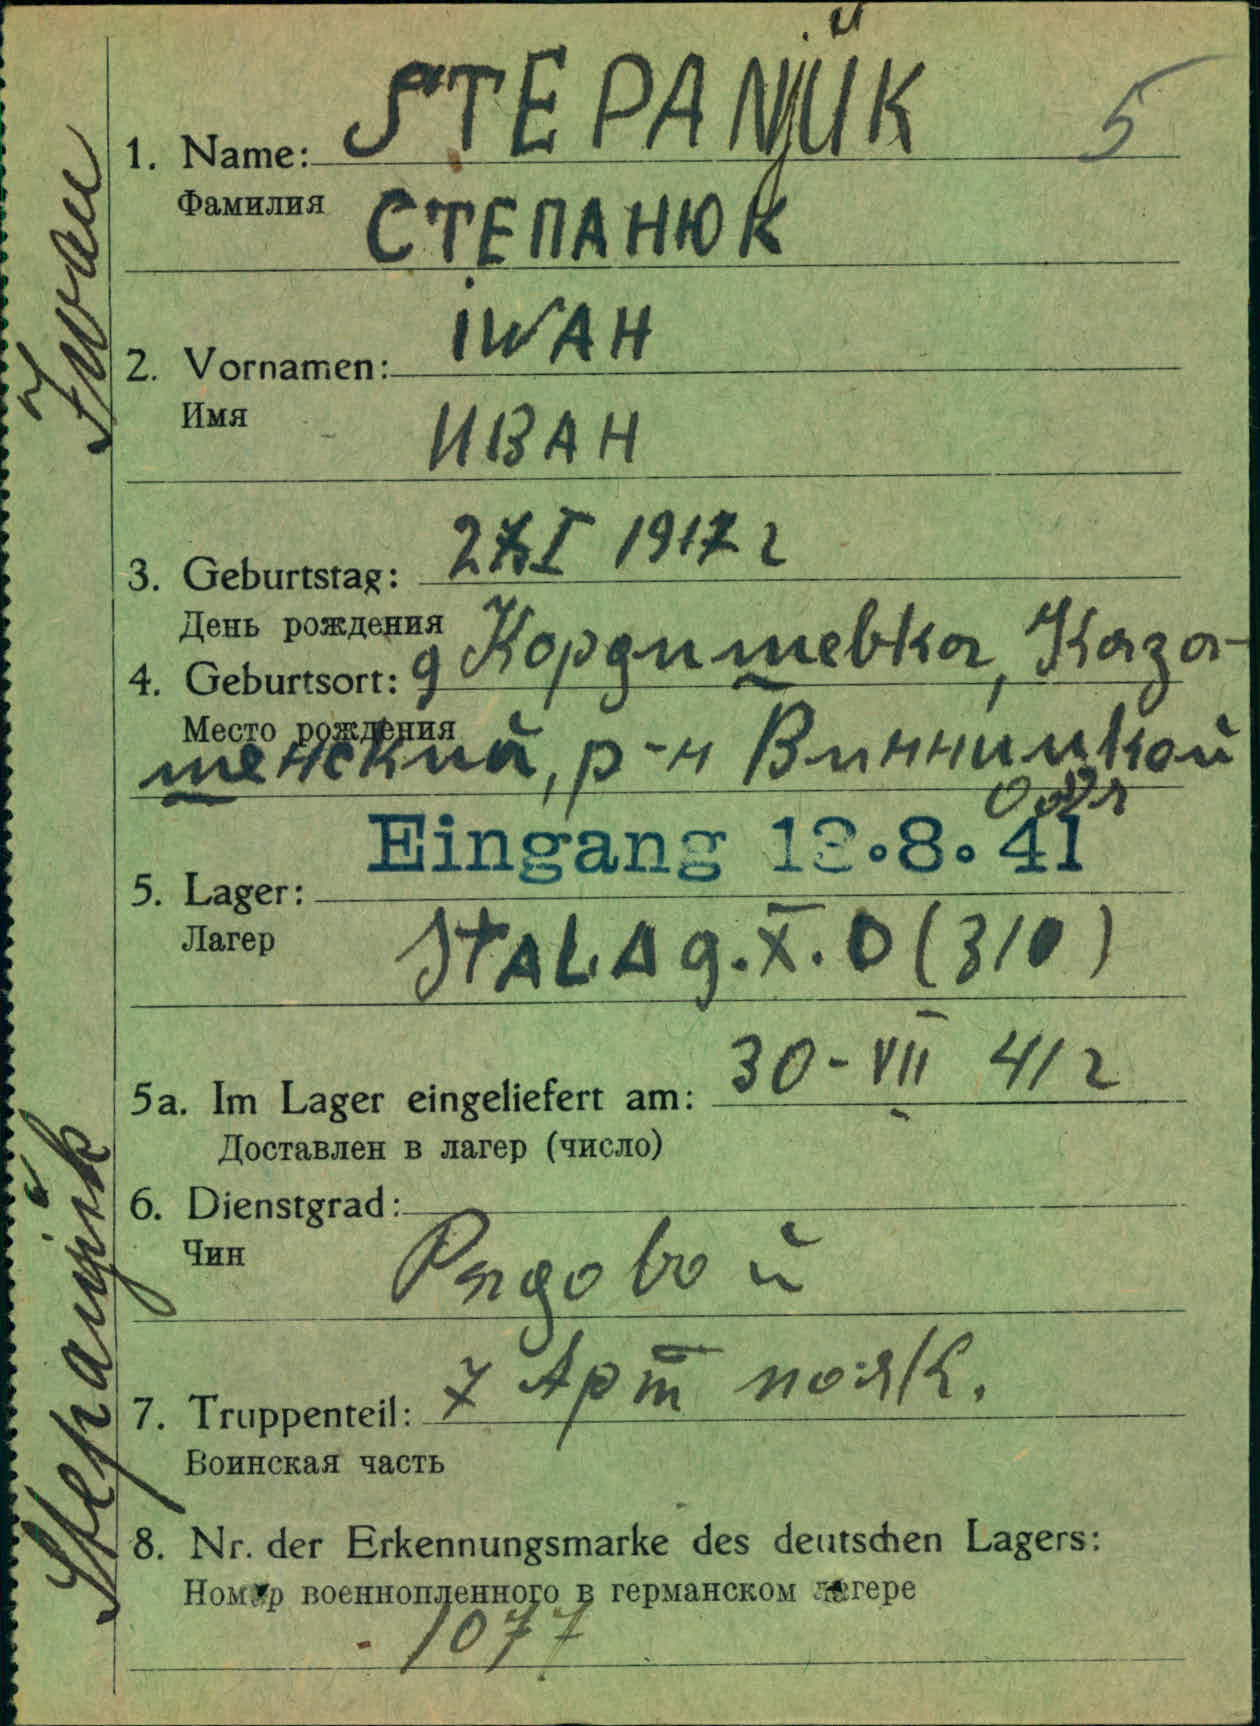 STEPANjÜK
5
1. Name:
Фамилия
СТЕПАНЮК
iWAH
2. Vornamen:
Имя
ИВАН
I 1917 г
3. Geburtstag:
День рождения
д Кордишевка, Каза-
4. Geburtsort:
Место рождения
тенский, р-н Винницкой
обл
Eingang 13.8.41
5. Lager:
Лагер
STALAg.X.D (310)
5a. Im Lager eingeliefert am: 30-VII 41 г
Доставлен в лагер (число)
6. Dienstgrad:
Чин
Рядовой
7 Арт полк.
7. Truppenteil:
Воинская часть
8. Nr. der Erkennungsmarke des deutschen Lagers:
Номер военнопленного в германском лагере
1077
Stepanjuk Iwan